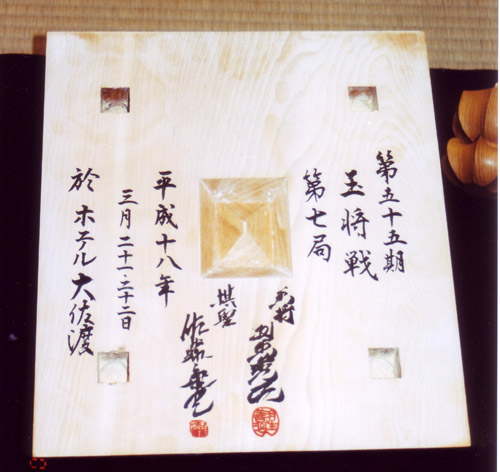 第五十五期
王将戦
第七局
王将
棋聖
佐藤康光
平成十八年
三月二十一・二十二日
於 ホテル大佐渡